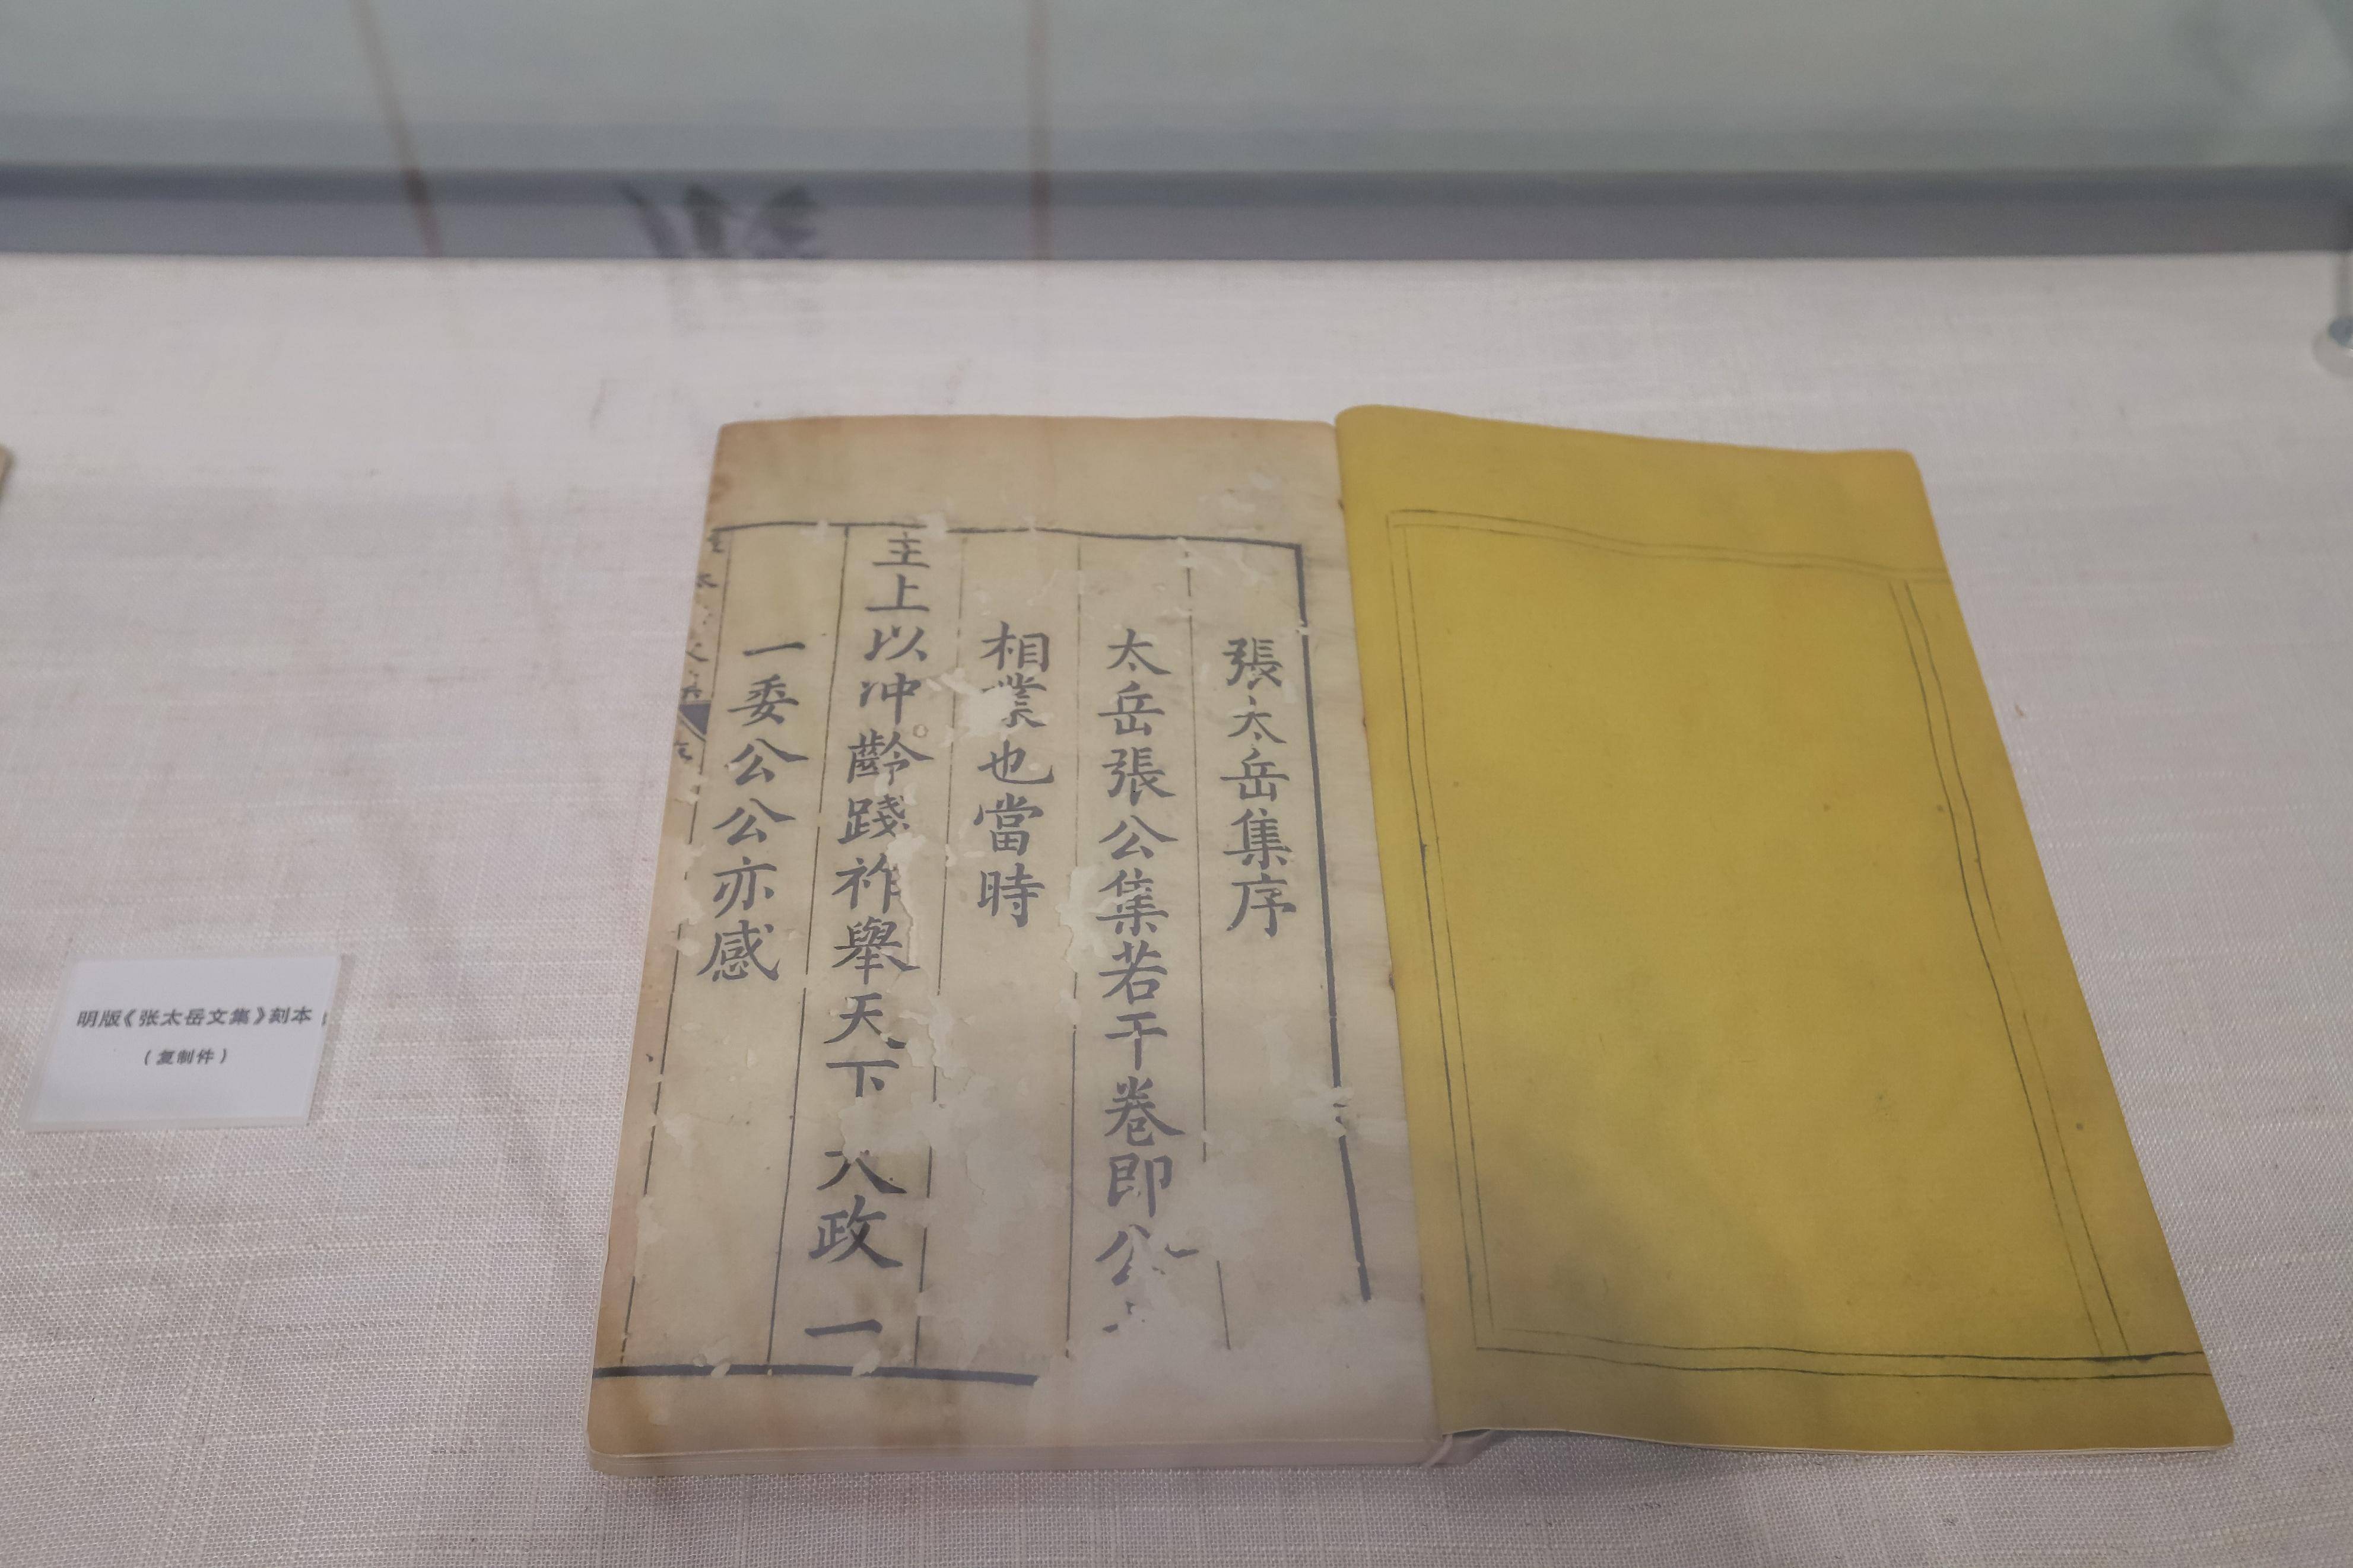 張太岳集序
太岳張公集若干卷即公
相業也當時
主上以冲齡踐祚舉天下大政一
一委公公亦感
明版《张太岳文集》刻本
（复制件）